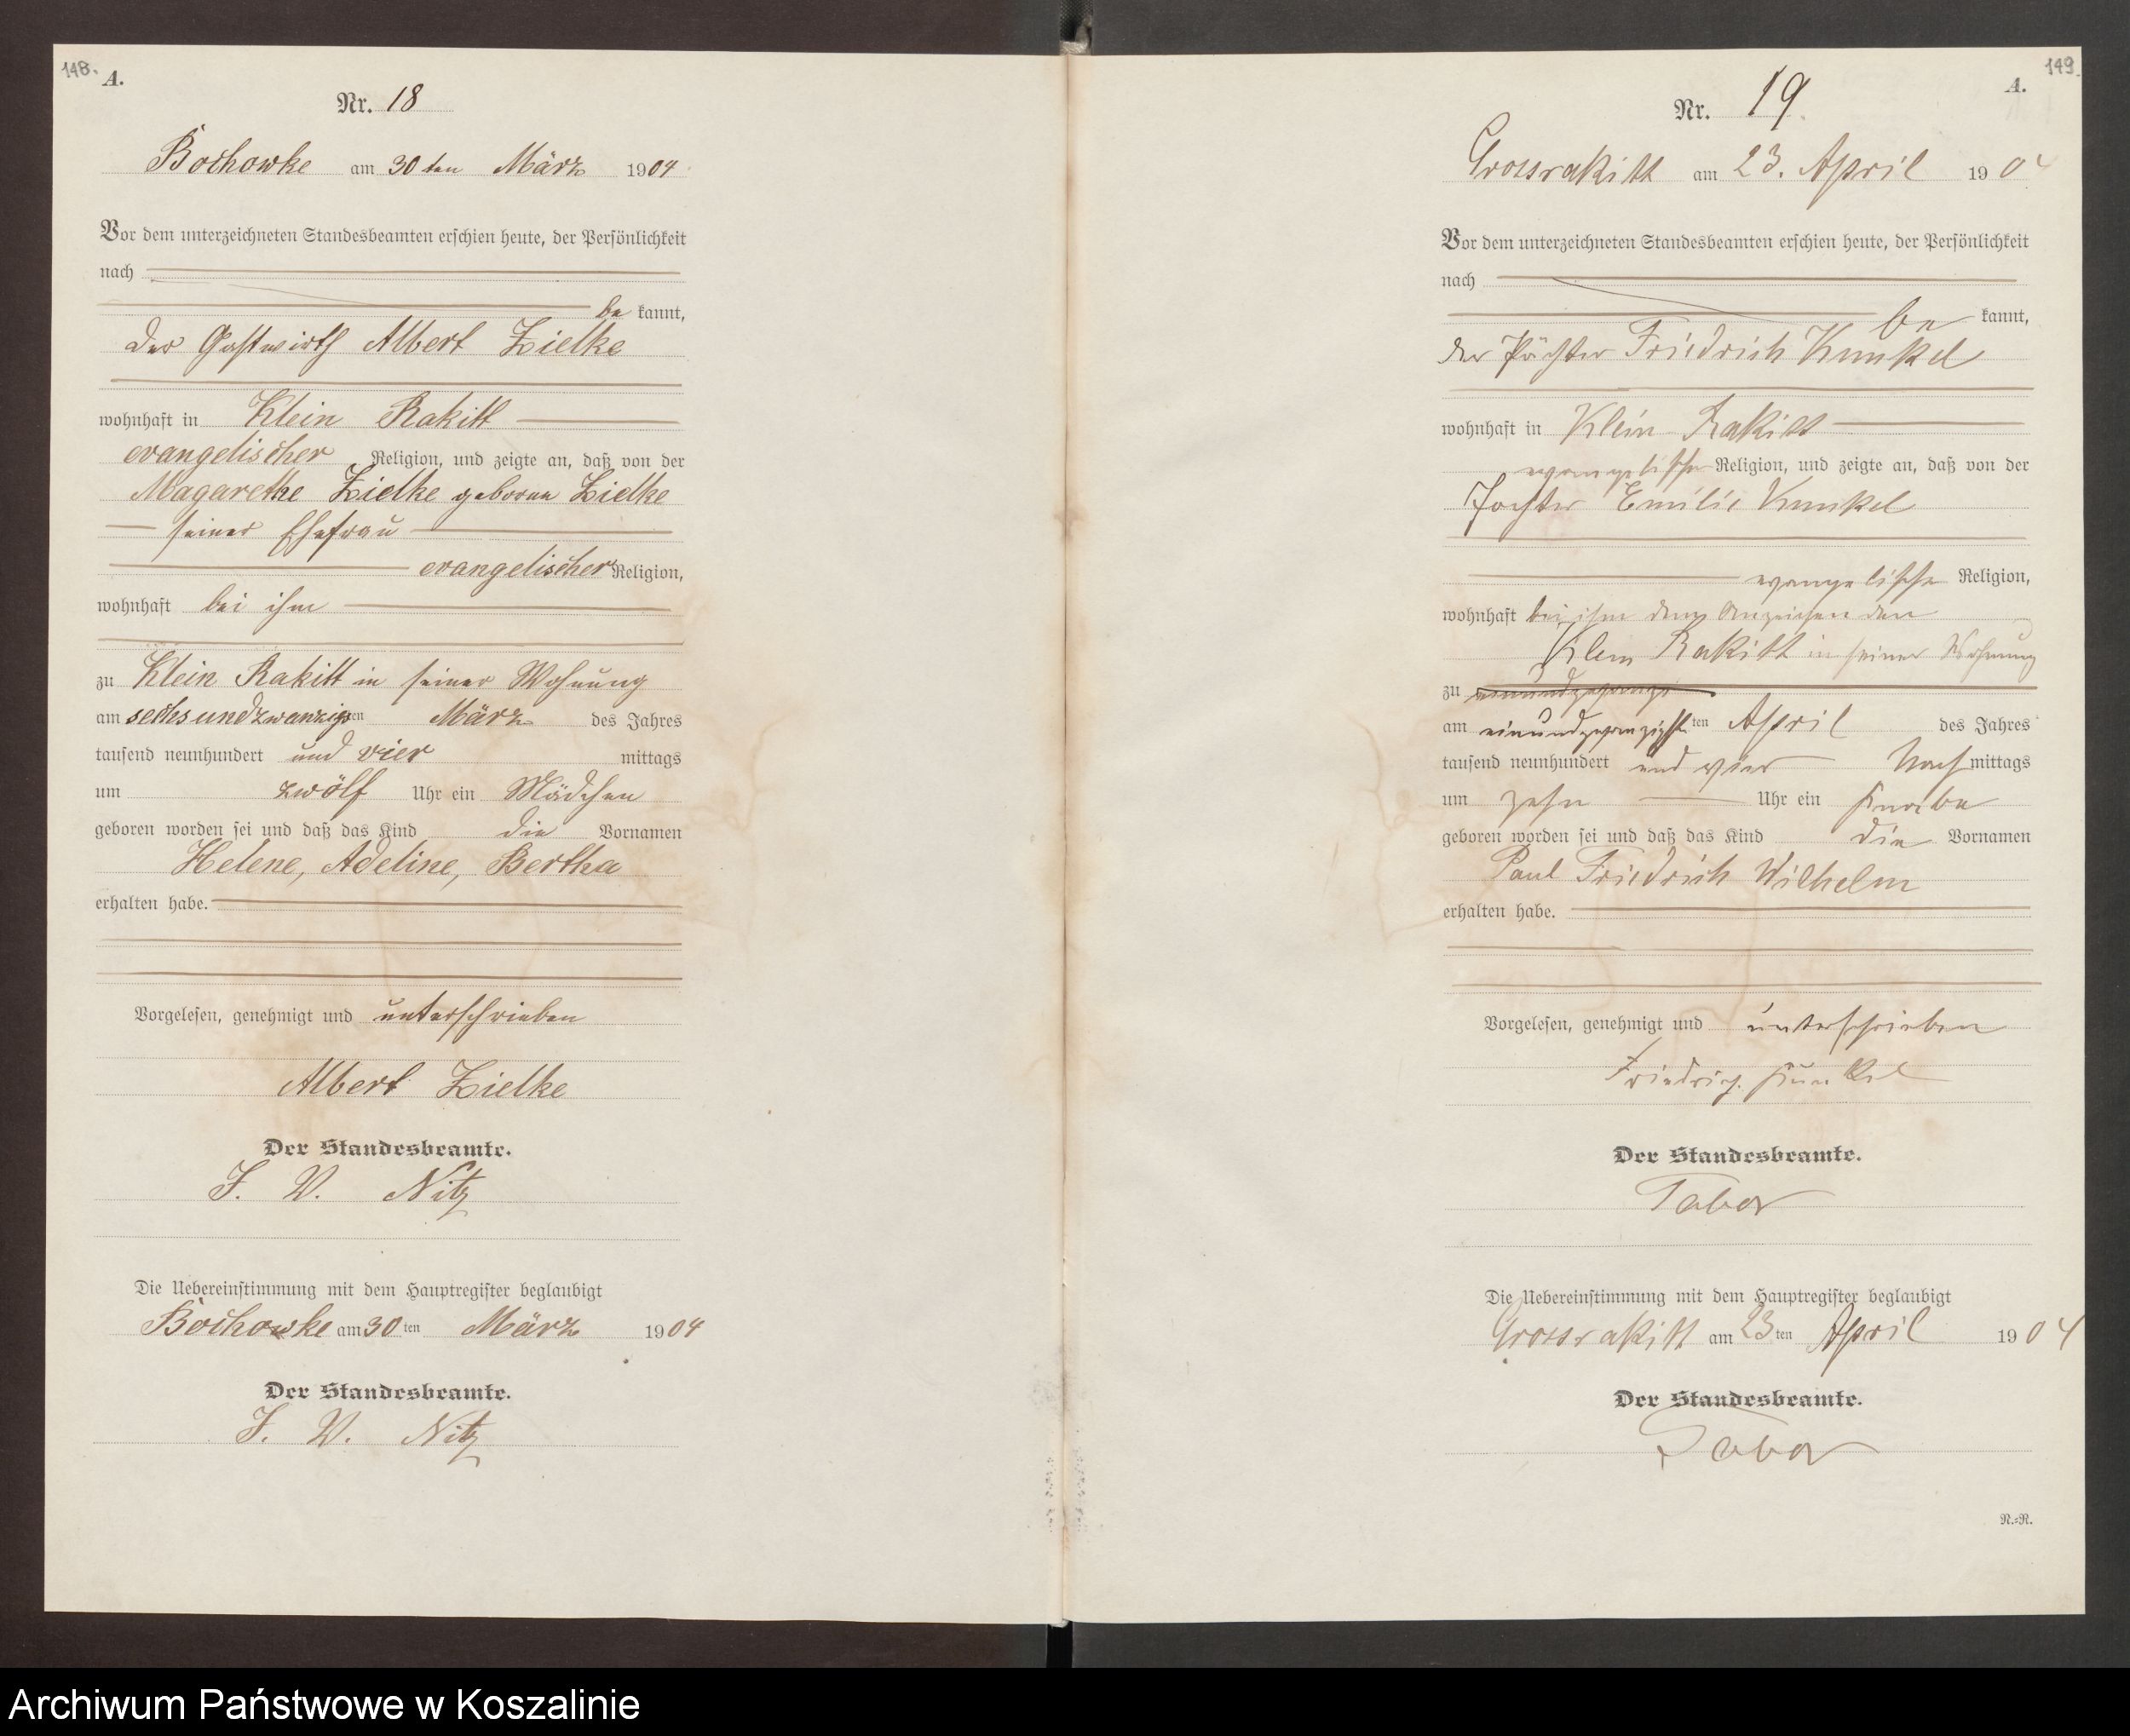 148.
A.
Nr. 18
Bochowke am 30ten März 1904
Vor dem unterzeichneten Standesbeamten erschien heute, der Persönlichkeit
nach
be kannt,
der Gastwirth Albert Zielke
wohnhaft in Klein Rakitt
evangelischer Religion, und zeigte an, daß von der
Magarethe Zielke geborne Zielke
seiner Ehefrau
evangelischer Religion,
wohnhaft bei ihm
zu Klein Rakitt in seiner Wohnung
am sechsundzwanzigsten März des Jahres
tausend neunhundert und vier mittags
um zwölf Uhr ein Mädchen
geboren worden sei und daß das Kind die Vornamen
Helene, Adeline, Bertha
erhalten habe.
Vorgelesen, genehmigt und unterschrieben
Albert Zielke
Der Standesbeamte.
J. V. Nitz
Die Uebereinstimmung mit dem Hauptregister beglaubigt
Bochowke am 30ten März 1904
Der Standesbeamte.
J. V. Nitz
149.
A.
Nr. 19.
Grossrakitt am 23. April 1904
Vor dem unterzeichneten Standesbeamten erschien heute, der Persönlichkeit
nach
be kannt,
der Pächter Friedrich Kunkel
wohnhaft in Klein Rakitt
evangelischer Religion, und zeigte an, daß von der
Tochter Emilie Kunkel
evangelischer Religion,
wohnhaft bei ihm dem Anzeigenden
Klein Rakitt in seiner Wohnung
zu
am einundzwanzigsten April des Jahres
tausend neunhundert und vier Nachmittags
um zehn Uhr ein Knabe
geboren worden sei und daß das Kind die Vornamen
Paul Friedrich Wilhelm
erhalten habe.
Vorgelesen, genehmigt und unterschrieben
Friedrich Kunkel
Der Standesbeamte.
Tabor
Die Uebereinstimmung mit dem Hauptregister beglaubigt
Grossrakitt am 23ten April 1904
Der Standesbeamte.
Tabor
N.=N.
Archiwum Państwowe w Koszalinie